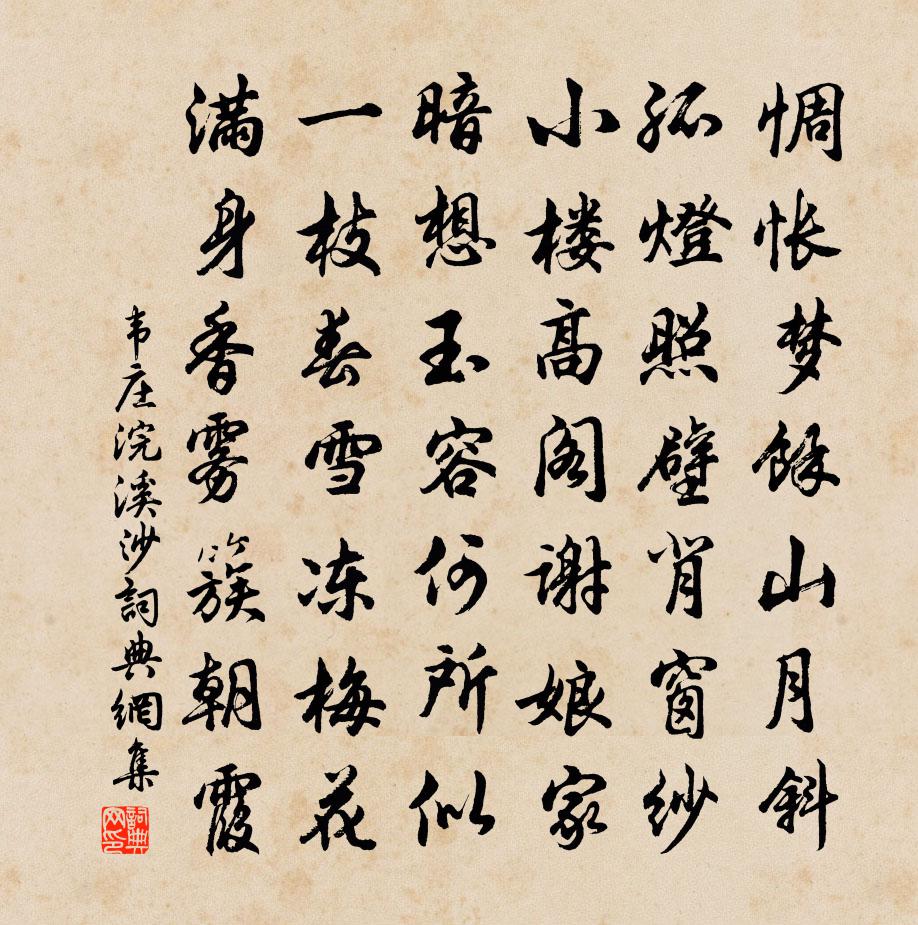 惆怅梦馀山月斜
孤燈照壁背窗纱
小楼高阁谢娘家
暗想玉容何所似
一枝春雪冻梅花
满身香雾簇朝霞
韦庄浣溪沙詞典網集
詞典网印